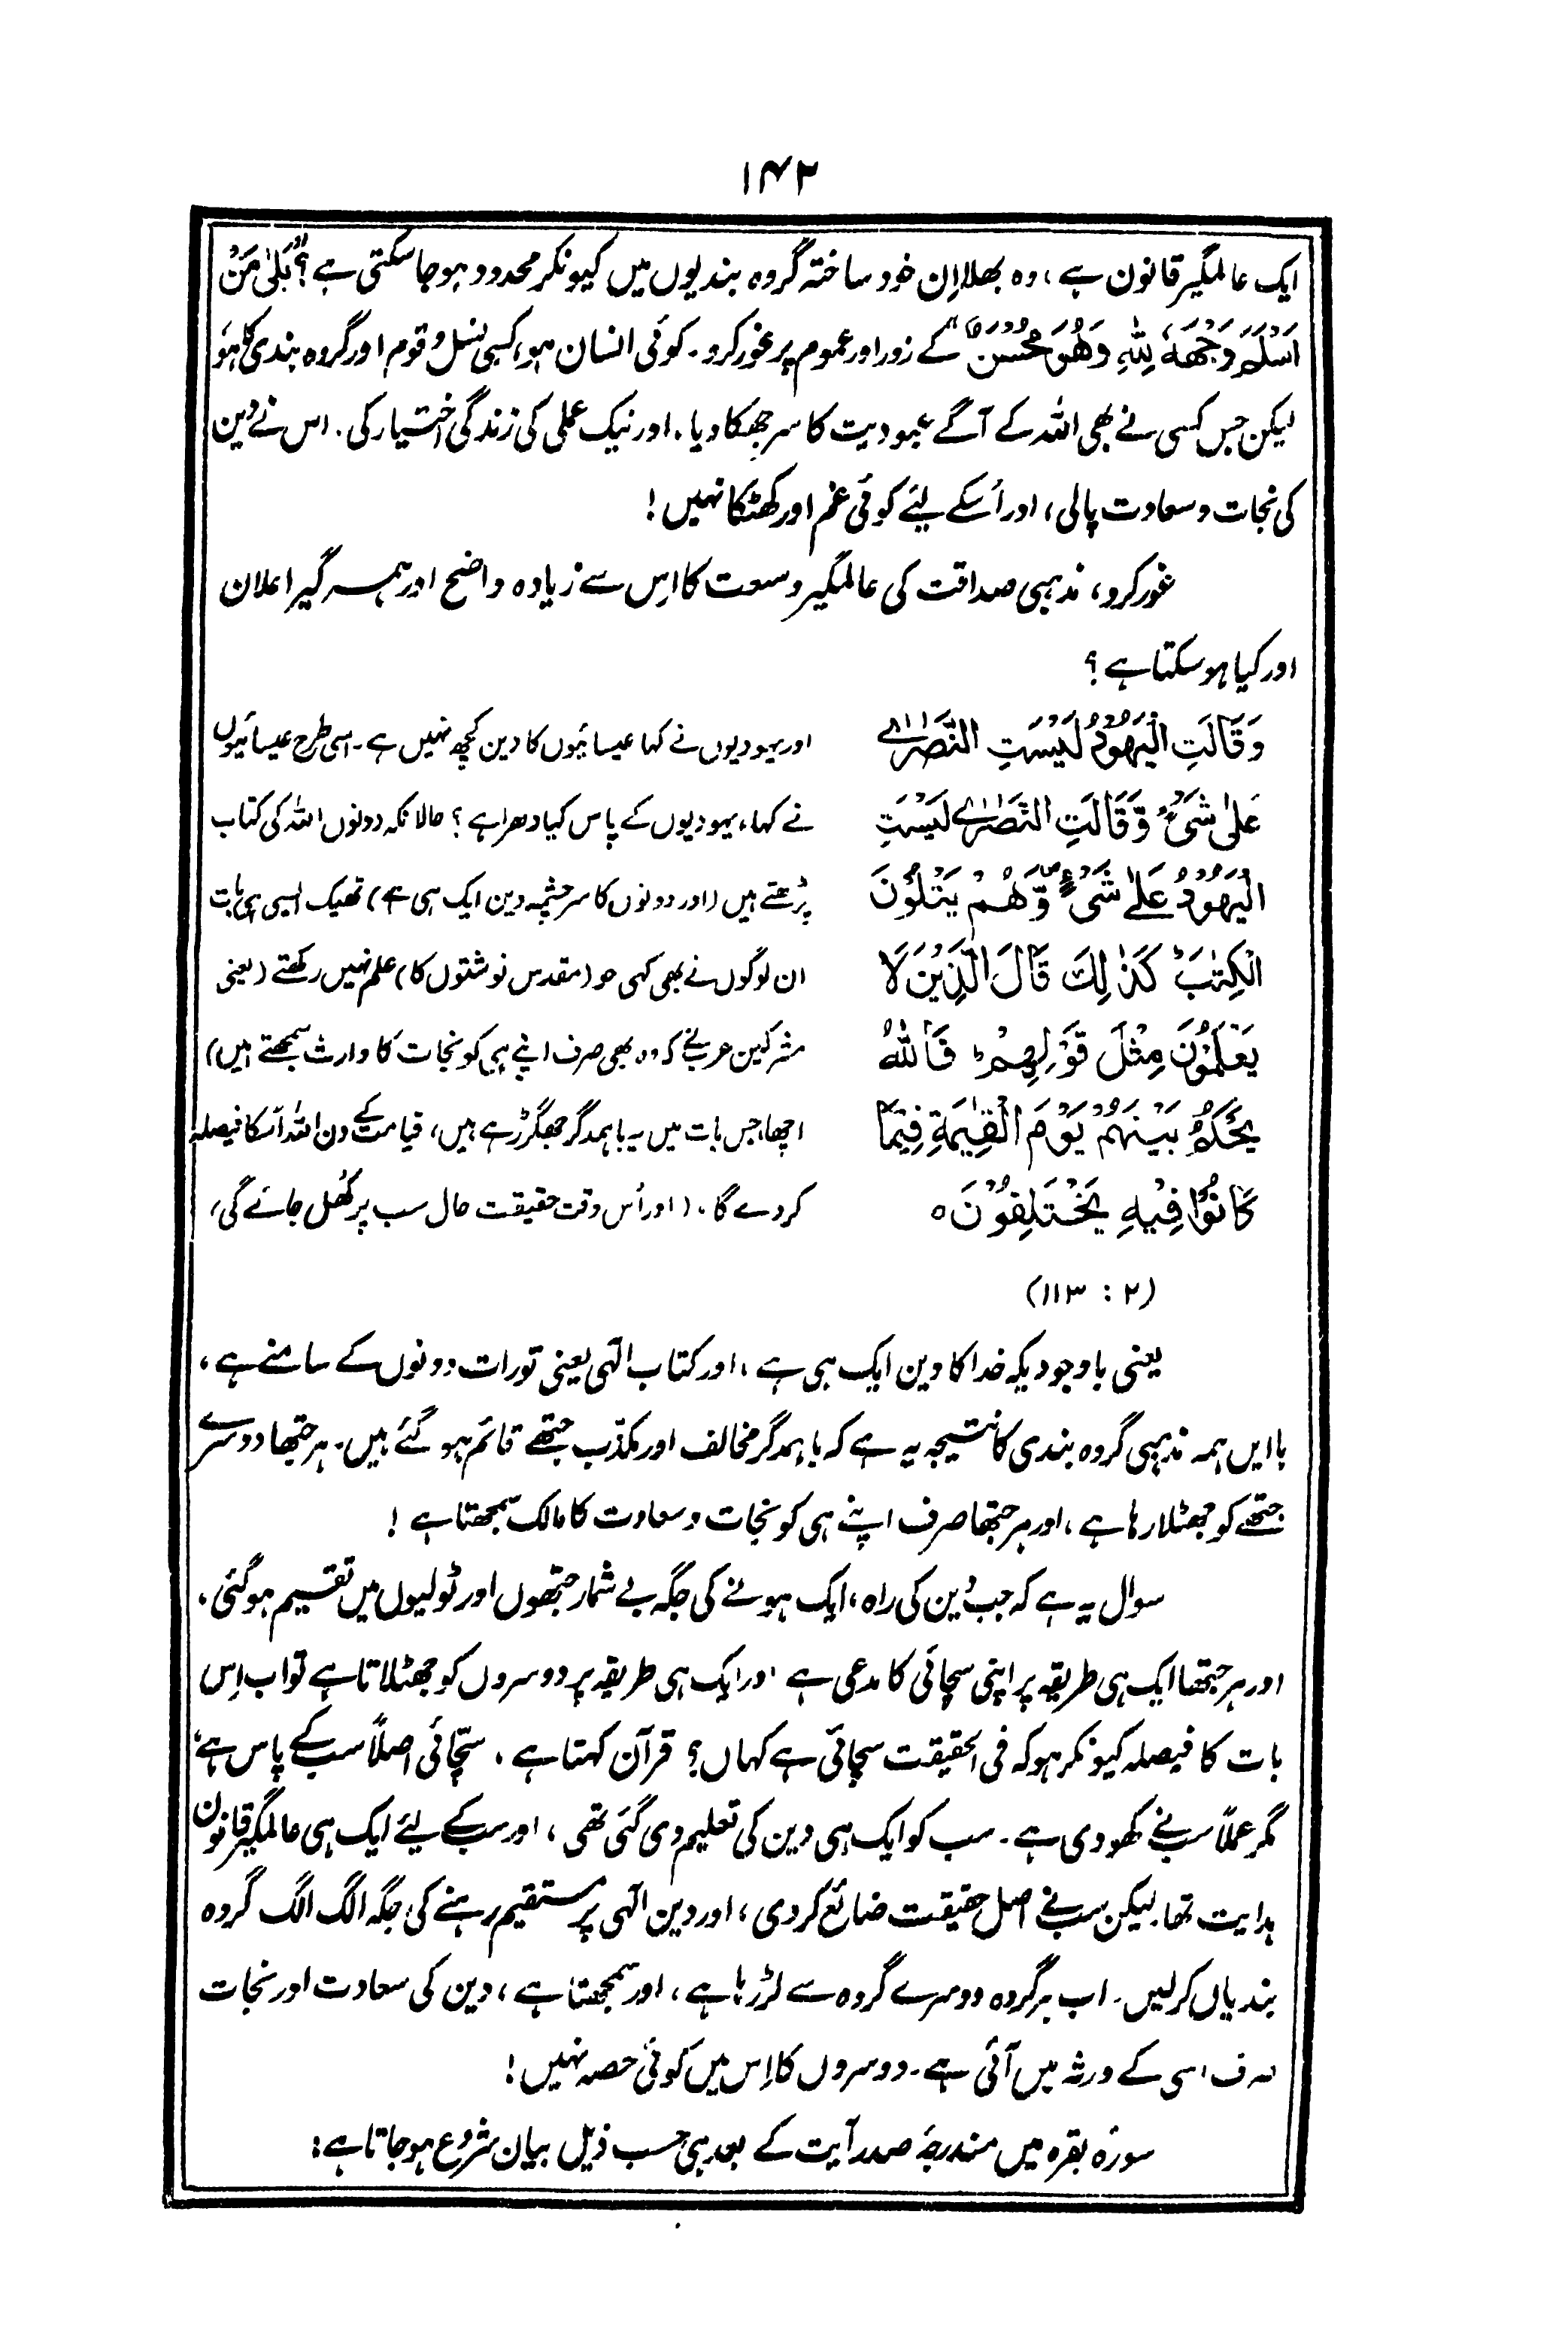 ۱۴۲
ایک عالمگیر قانون ہے، وہ بھلا اِن خود ساختہ گروہ بندیوں میں کیونکر محدود ہو جا سکتی ہے؟ "بَلیٰ مَنْ
اَسْلَمَ وَجْهَهٗ لِلّٰهِ وَهُوَ مُحْسِنٌ" کے زور اور عموم پر غور کرو۔ کوئی انسان ہو، کسی نسل و قوم اور گروہ بندی کا ہو
لیکن جس کسی نے بھی اللہ کے آگے عبودیت کا سر جھکا دیا، اور نیک عملی کی زندگی اختیار کی۔ اس نے دین
کی نجات و سعادت پالی، اور اُسکے لیئے کوئی غم اور کھٹکا نہیں!
غور کرو، مذہبی صداقت کی عالمگیر وسعت کا اِس سے زیادہ واضح اور ہمہ گیر اعلان
اور کیا ہو سکتا ہے؟
وَقَالَتِ الْيَهُوْدُ لَيْسَتِ النَّصٰرٰے
عَلٰی شَیْءٍ وَّقَالَتِ النَّصٰرٰے لَيْسَتِ
الْيَهُوْدُ عَلٰے شَیْءٍ وَّهُمْ يَتْلُوْنَ
الْكِتٰبَ ؕ كَذٰلِكَ قَالَ الَّذِيْنَ لَا
يَعْلَمُوْنَ مِثْلَ قَوْلِهِمْ ؕ فَاللّٰهُ
يَحْكُمُ بَيْنَهُمْ يَوْمَ الْقِيٰمَةِ فِيْمَا
كَانُوْا فِيْهِ يَخْتَلِفُوْنَ ○
(۲ : ۱۱۳)
اور یہودیوں نے کہا عیسائیوں کا دین کچھ نہیں ہے۔ اسی طرح عیسائیوں
نے کہا، یہودیوں کے پاس کیا دھرا ہے؟ حالانکہ دونوں اللہ کی کتاب
پڑھتے ہیں (اور دونوں کا سرچشمہ دین ایک ہی ہے) ٹھیک ایسی ہی بات
ان لوگوں نے بھی کہی جو (مقدس نوشتوں کا) علم نہیں رکھتے (یعنی
مشرکین عرب نے کہ وہ بھی صرف اپنے ہی کو نجات کا وارث سمجھتے ہیں)
اچھا، جس بات میں یہ باہمدگر جھگڑ رہے ہیں، قیامت کے دن اللہ اُسکا فیصلہ
کر دے گا۔ (اور اُس وقت حقیقت حال سب پر کھل جائے گی)
یعنی باوجودیکہ خدا کا دین ایک ہی ہے، اور کتاب الٰہی یعنی تورات دونوں کے سامنے ہے،
باایں ہمہ مذہبی گروہ بندی کا نتیجہ یہ ہے کہ باہمدگر مخالف اور مکذب جتھے قائم ہو گئے ہیں۔ ہر جتھا دوسرے
جتھے کو جھٹلا رہا ہے، اور ہر جتھا صرف اپنے ہی کو نجات و سعادت کا مالک سمجھتا ہے!
سوال یہ ہے کہ جب دین کی راہ، ایک ہونے کی جگہ بے شمار جتھوں اور ٹولیوں میں تقسیم ہو گئی،
اور ہر جتھا ایک ہی طریقہ پر اپنی سچائی کا مدعی ہے اور ایک ہی طریقہ پر دوسروں کو جھٹلاتا ہے تو اب اِس
بات کا فیصلہ کیونکر ہو کہ فی الحقیقت سچائی ہے کہاں؟ قرآن کہتا ہے، سچّائی اصلاً سب کے پاس ہے
مگر عملاً سب نے کھو دی ہے۔ سب کو ایک ہی دین کی تعلیم دی گئی تھی، اور سب کے لیئے ایک ہی عالمگیر قانون
ہدایت تھا۔ لیکن سب نے اصل حقیقت ضائع کر دی، اور دین الٰہی پر مستقیم رہنے کی جگہ الگ الگ گروہ
بندیاں کرلیں۔ اب ہر گروہ دوسرے گروہ سے لڑ رہا ہے، اور سمجھتا ہے، دین کی سعادت اور نجات
صرف اسی کے ورثہ میں آئی ہے۔ دوسروں کا اِس میں کوئی حصہ نہیں!
سورۂ بقرہ میں مندرجۂ صدر آیت کے بعد ہی حسب ذیل بیان شروع ہو جاتا ہے: